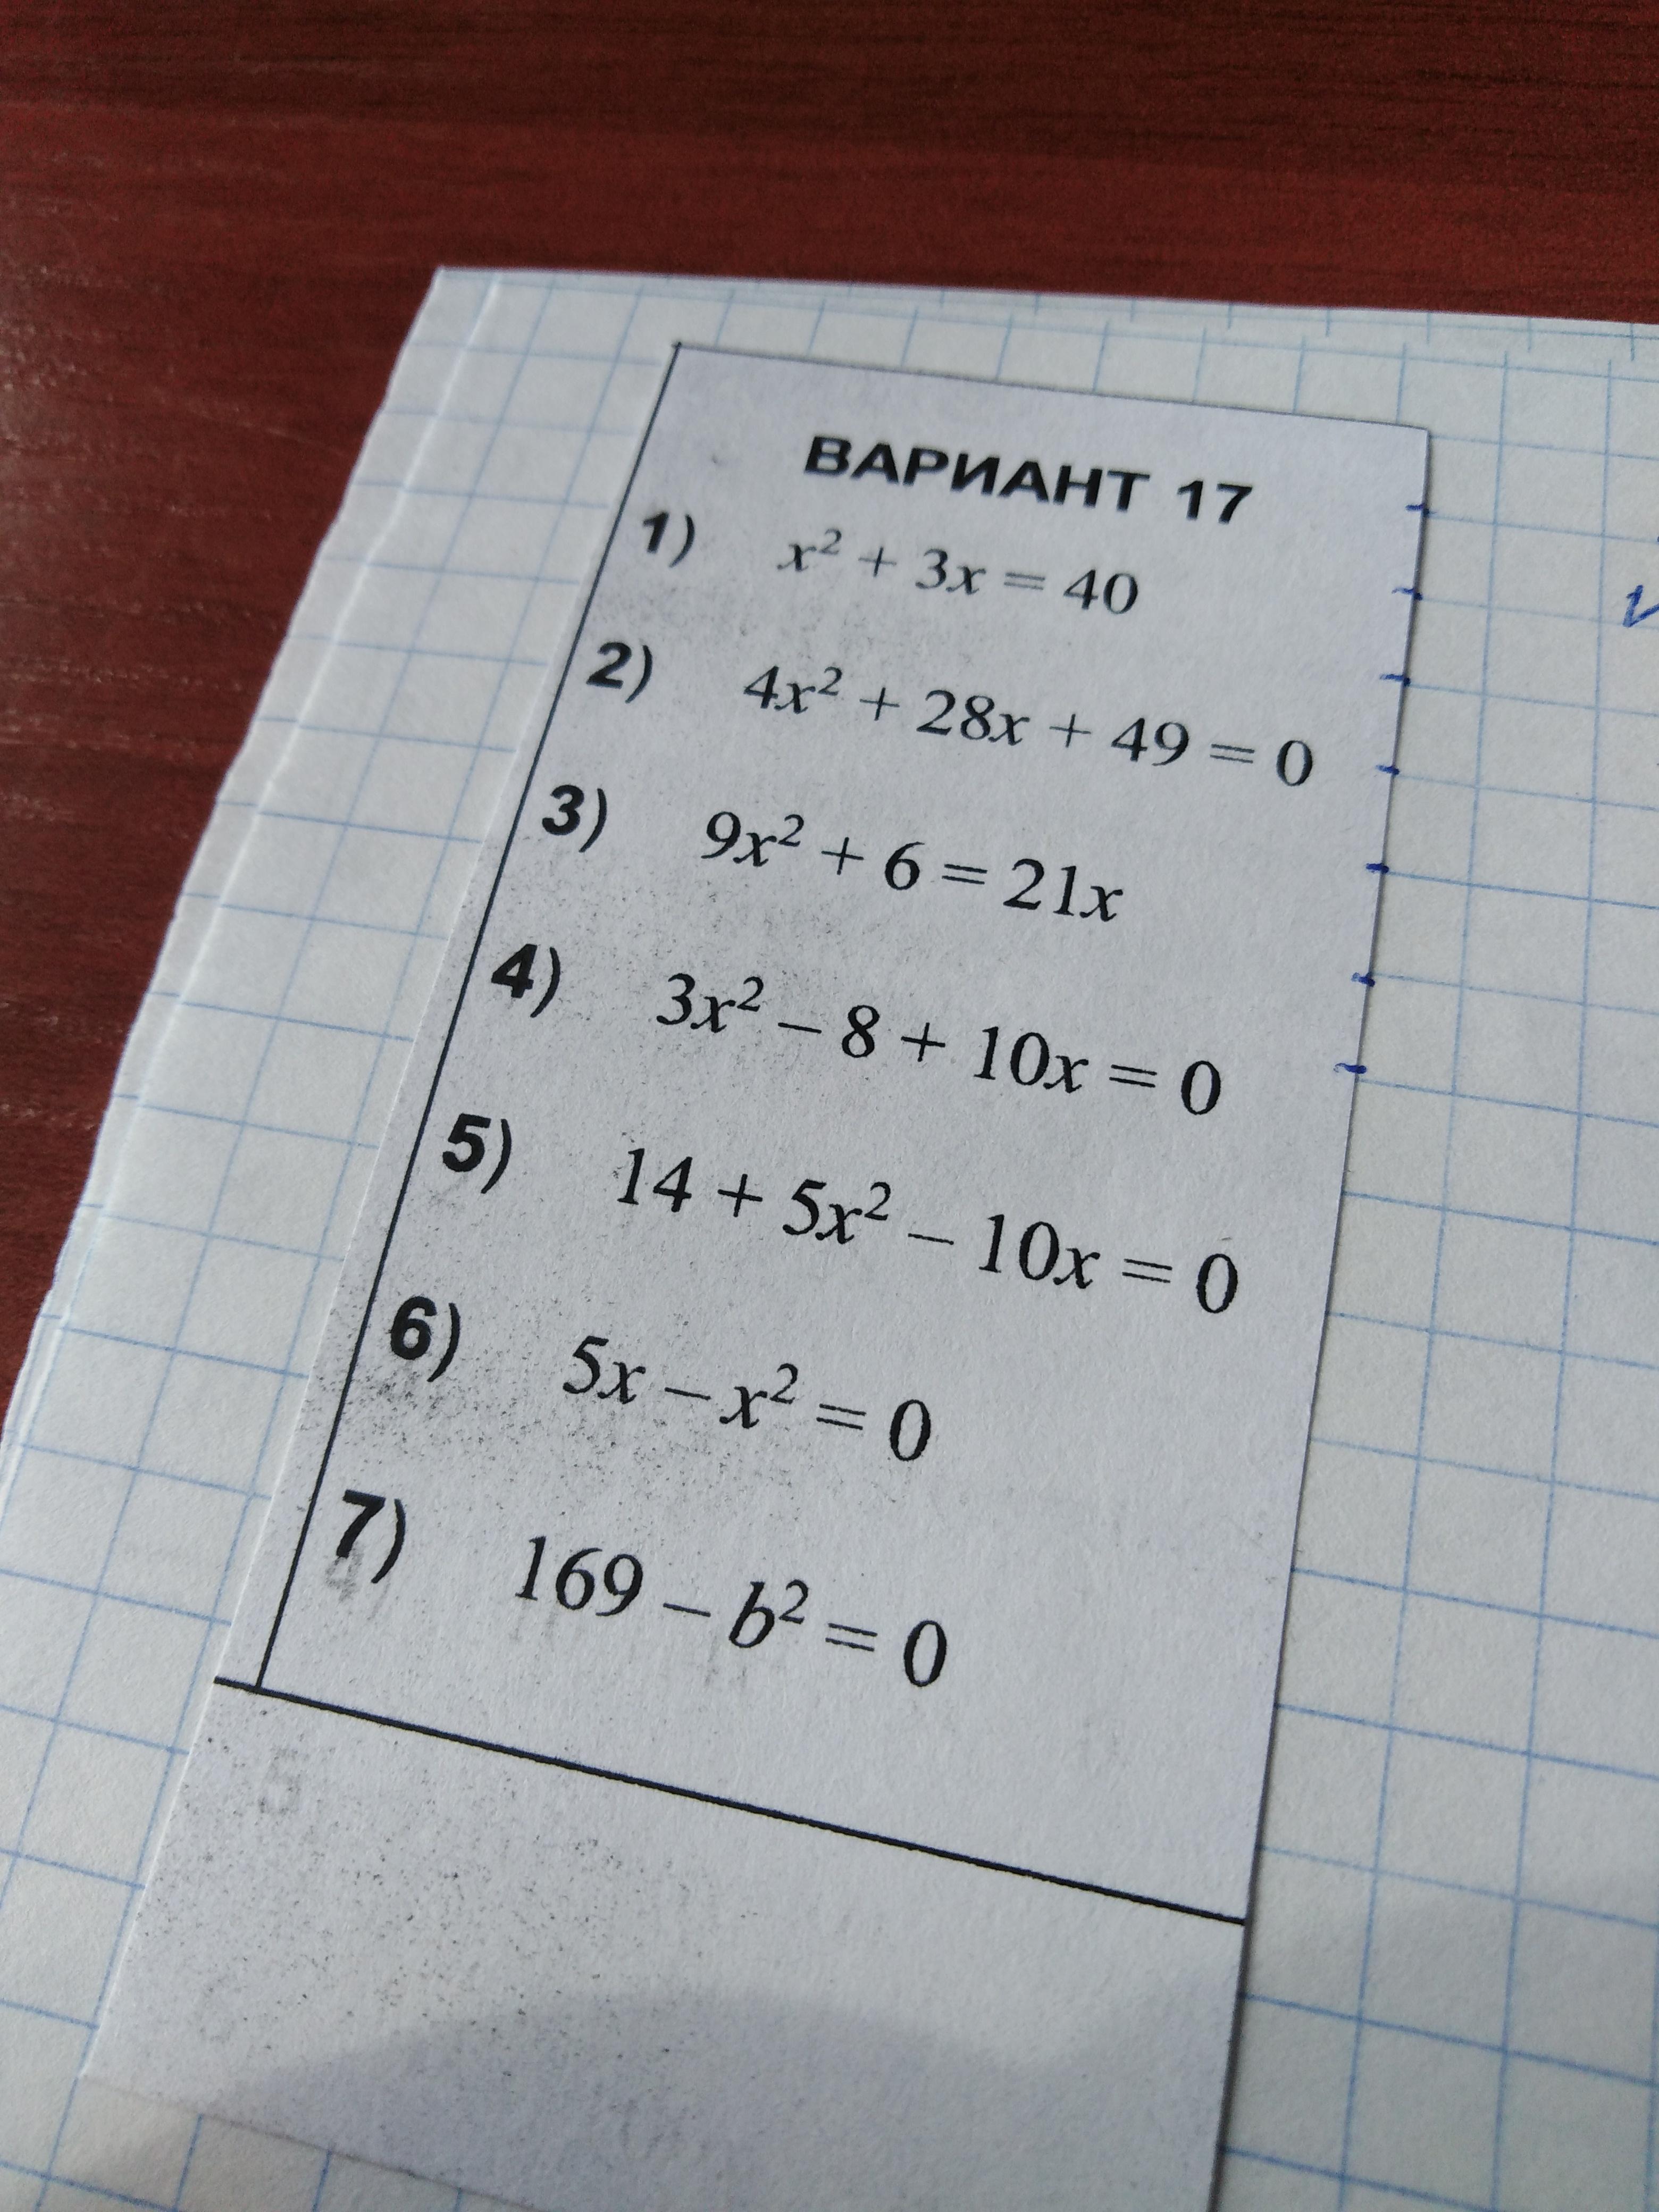 ВАРИАНТ 17
1) x² + 3x = 40
2) 4x² + 28x + 49 = 0
3) 9x² + 6 = 21x
4) 3x² – 8 + 10x = 0
5) 14 + 5x² – 10x = 0
6) 5x – x² = 0
7) 169 – b² = 0